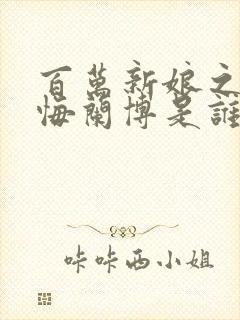 百萬新娘之
悔蘭博是誰
咔咔西小姐